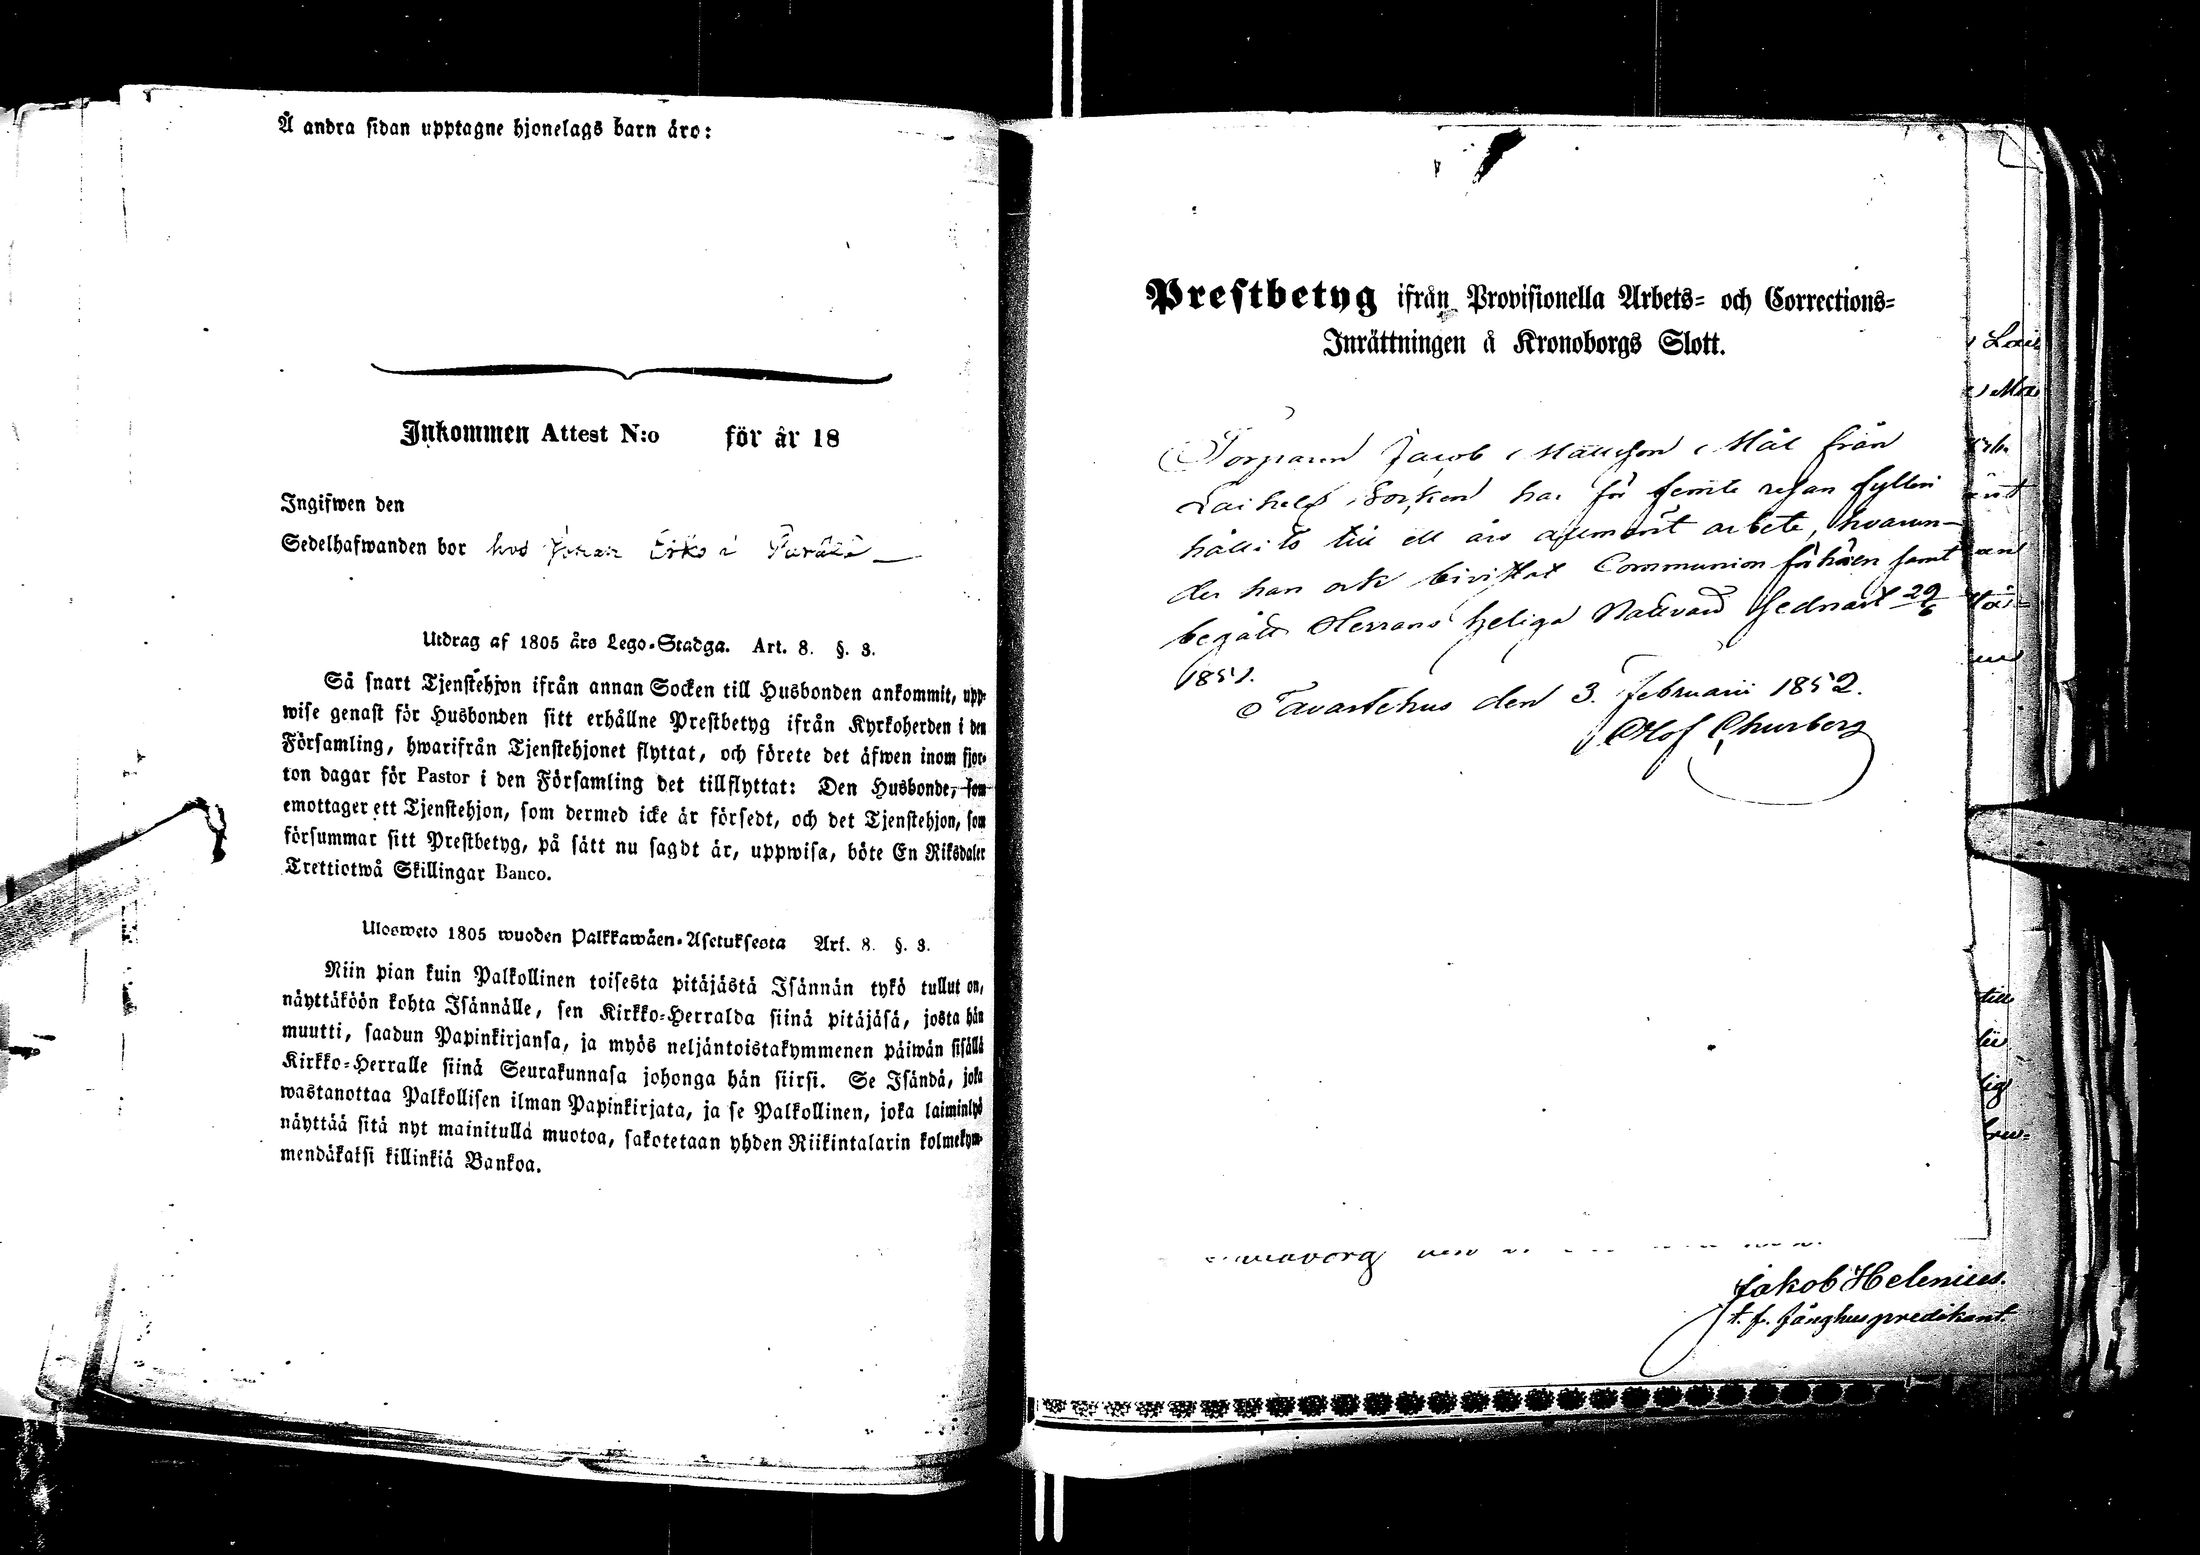 Å andra sidan upptagne hjonelags barn äro:
Inkommen Attest N:o för år 18
Ingifwen den
Sedelhafwanden bor hos Johan Erks i
Utdrag af 1805 års Lego-Stadga. Art. 8. §. 3.
Så snart Tjenstehjon ifrån annan Socken till Husbonden ankommit, upp-
wise genast för Husbonden sitt erhållne Prestbetyg ifrån Kyrkoherden i den
Församling, hwarifrån Tjenstehjonet flyttat, och förete det äfwen inom fjor-
ton dagar för Pastor i den Församling det tillflyttat: Den Husbonde, som
emottager ett Tjenstehjon, som dermed icke är försedt, och det Tjenstehjon, som
försummar sitt Prestbetyg, på sätt nu sagdt är, uppwisa, böte En Riksdaler
Trettiotwå Skillingar Banco.
Ulosweto 1805 wuoden Palkkawäen-Asetuksesta Art. 8. §. 3.
Niin pian kuin Palkollinen toisesta pitäjästä Isännän tykö tullut on,
näyttäköön kohta Isännälle, sen Kirkko-Herralda siinä pitäjäsä, josta hän
muutti, saadun Papinkirjansa, ja myös neljäntoistakymmenen päiwän sisällä
Kirkko-Herralle siinä Seurakunnasa johonga hän siirsi. Se Isändä, joka
wastanottaa Palkollisen ilman Papinkirjata, ja se Palkollinen, joka laiminlyö
näyttää sitä nyt mainitulla muotoa, sakotetaan yhden Riikintalarin kolmekym-
mendäkaksi killinkiä Bankoa.
Prestbetyg ifrån Provisionella Arbets- och Corrections-
Inrättningen å Kronoborgs Slott.
Torparen Jacob Mattsson från
Laihela Socken har för femte resan fylleri
hållits till ett års allmänt arbete, hvarun-
der han ock bivistat Communion förhören samt
begått Herrans heliga Nattvard sednast 29/6
1851.
Tavastehus den 3. Februarii 1852.
Olof Churberg
Jakob Helenius.
t. f. fänghuspredikant.